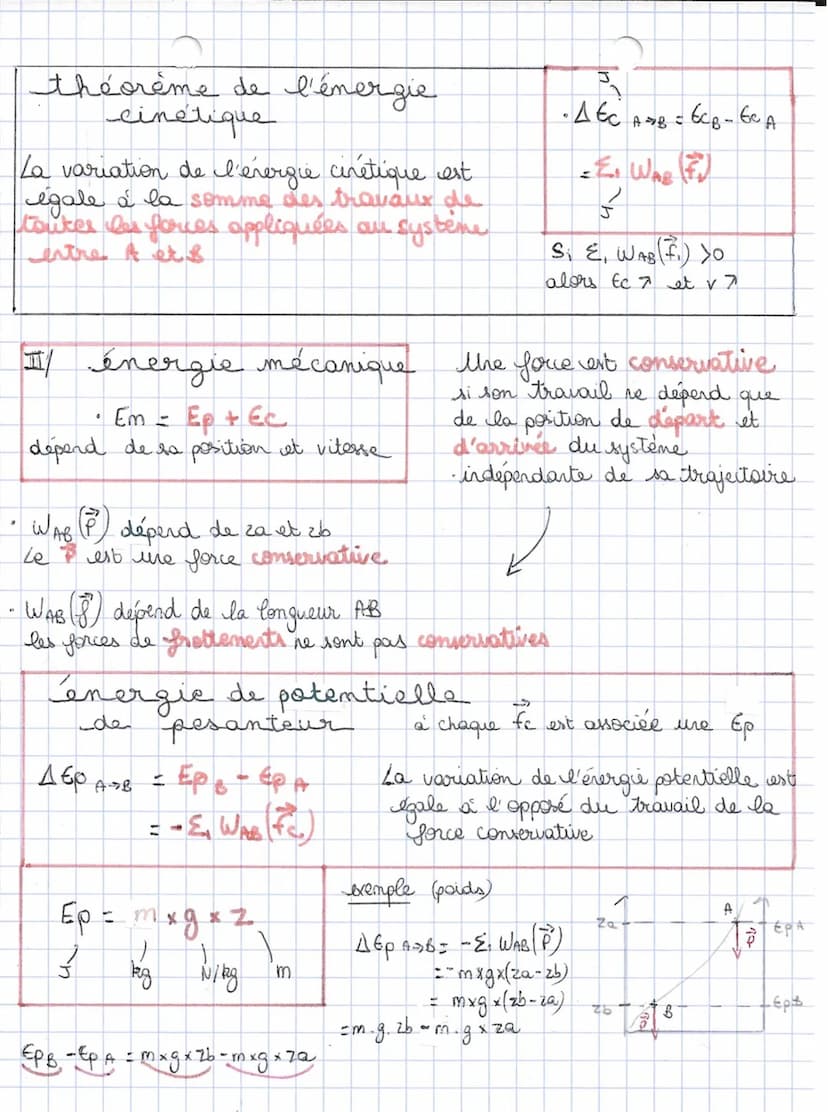 théorème de l'énergie
cinétique
La variation de l'énergie cinétique est
égale à la somme des travaux de
toutes les forces appliquées au système
entre A et B
J
• Δ Ec A→B = EcB - Ec A
= Σ WAB (f⃗)
J
Si Σ WAB(f⃗) >0
alors Ec ↗ et v ↗
II/ énergie mécanique
• Em = Ep + Ec
dépend de sa position et vitesse
Une force est conservative
si son travail ne dépend que
de la position de départ et
d'arrivée du système
• indépendante de sa trajectoire
• WAB (P⃗) dépend de za et zb
Le P⃗ est une force conservative
• WAB (f⃗) dépend de la longueur AB
les forces de frottements ne sont pas conservatives
énergie de potentielle
de pesanteur
à chaque f⃗c est associée une Ep
Δ Ep A→B = Ep B - Ep A
= - Σ WAB (f⃗c)
La variation de l'énergie potentielle est
égale à l'opposé du travail de la
force conservative
Ep = m × g × z
J kg N/kg m
exemple (poids)
Δ Ep A→B = - Σ WAB (P⃗)
= - m×g×(za-zb)
= m×g×(zb-za)
= m . g . zb - m . g × za
za A Ep A
P⃗
zb B Ep B
P⃗
Ep B - Ep A = m×g×zb - m×g×za